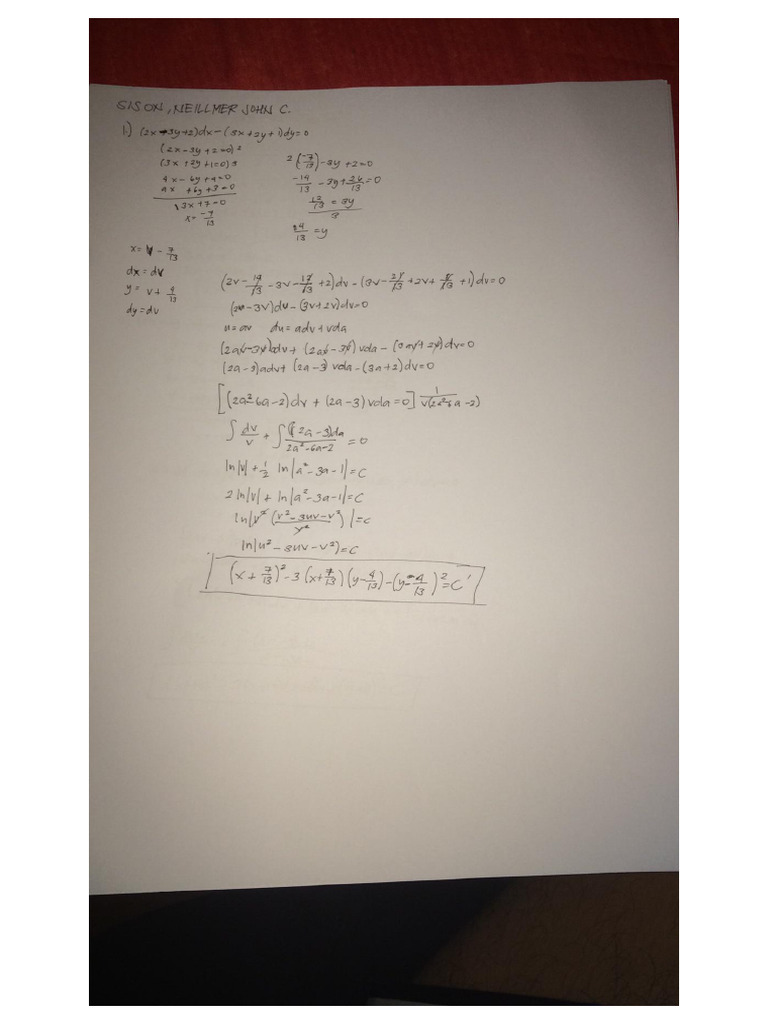 GISON, NEILLMER JOHN C.
1.) (2x-3y+2)dx-(3x+2y+1)dy=0
(2x-3y+2=0)2
(3x+2y+1=0)3
4x-6y+4=0
9x+6y+3=0
13x+7=0
x=-7/13
2(-7/13)-3y+2=0
-14/13-3y+26/13=0
12/13=3y
3
4/13=y
x=u-7/13
dx=du
y=v+4/13
dy=dv
(2u-14/13-3v-12/13+2)du-(3u-21/13+2v+8/13+1)dv=0
(2u-3v)du-(3u+2v)dv=0
u=av du=adv+vda
(2av-3v)adv+(2av-3v)vda-(3av+2v)dv=0
(2a-3)adv+(2a-3)vda-(3a+2)dv=0
[(2a²-6a-2)dv+(2a-3)vda=0] 1/v(2a²-6a-2)
∫dv/v+∫(2a-3)da/2a²-6a-2=0
ln|v|+1/2 ln|a²-3a-1|=C
2ln|v|+ln|a²-3a-1|=C
ln|v²(v²-3uv-v²)/v²|=c
ln|u²-3uv-v²)=C
(x+7/13)²-3(x+7/13)(y-4/13)-(y-4/13)²=C'